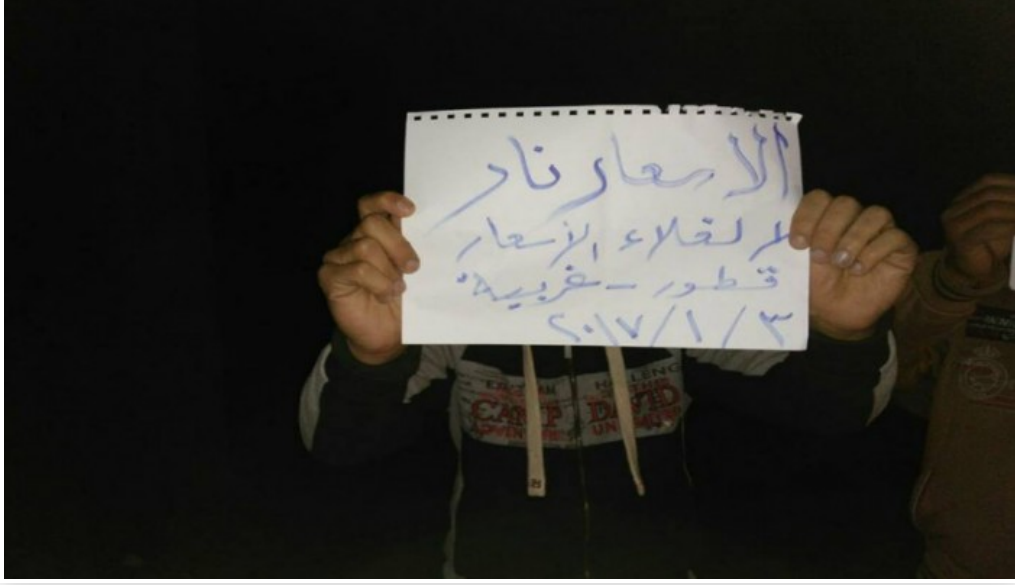 الاسعار نار
لا لغلاء الاسعار
قطور - غربية
٢٠١٧/١/٣
EASTERN
CAMP DAVID